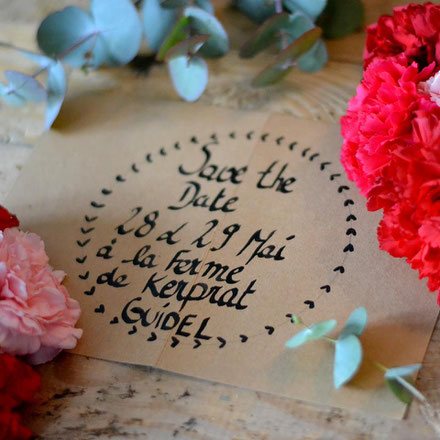 Save the
Date
28 d 29 Mai
à la Ferme
de Kerprat
GUIDEL